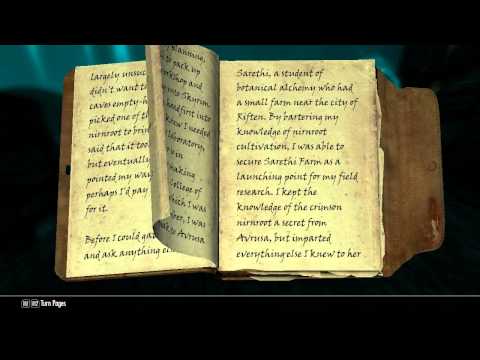 largely unsuc
didn't want to
caves empty-h
picked one of th
nirnroot to brin
said that it too
but eventually
pointed my wa
perhaps I'd pay
for it.
Before I could gat
and ask anything else
planning,
to pack up
rkshop and
into Skyrim.
headfirst into
I needed
laboratory,
in
making
College of
I was
I was
to Avrusa
Sarethi, a student of
botanical alchemy who had
a small farm near the city of
Riften. By bartering my
knowledge of nirnroot
cultivation, I was able to
secure Sarethi Farm as a
launching point for my field
research. I kept the
knowledge of the crimson
nirnroot a secret from
Avrusa, but imparted
everything else I knew to her
Turn Pages